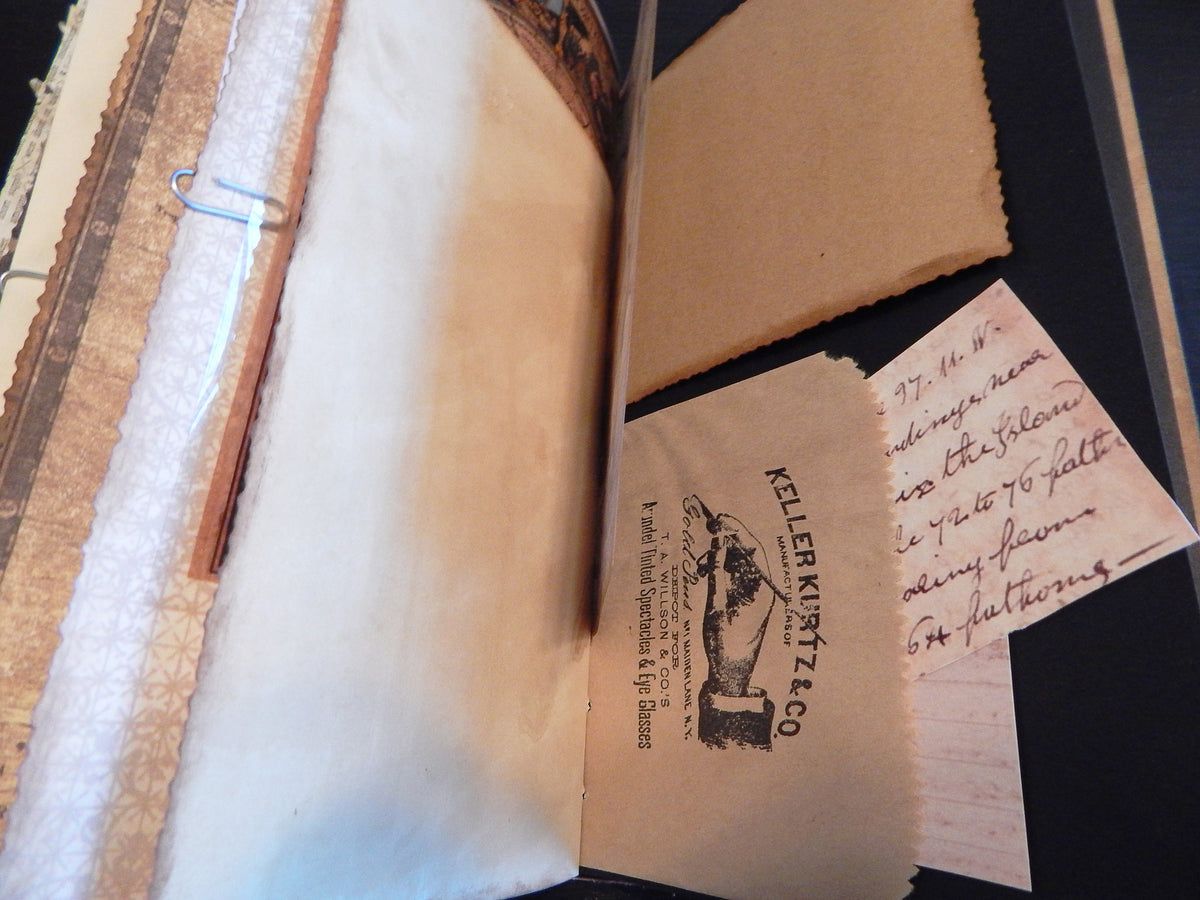 KELLER KURTZ & CO.
MANUFACTURERS OF
Gold Pens No 1 MAIDEN LANE, N.Y.
DEPOT FOR
T. A. WILLSON & CO.'S
Arundel Tinted Spectacles & Eye Glasses
97. 11. W.
near
the Island
72 to 76 fath
64 fathoms